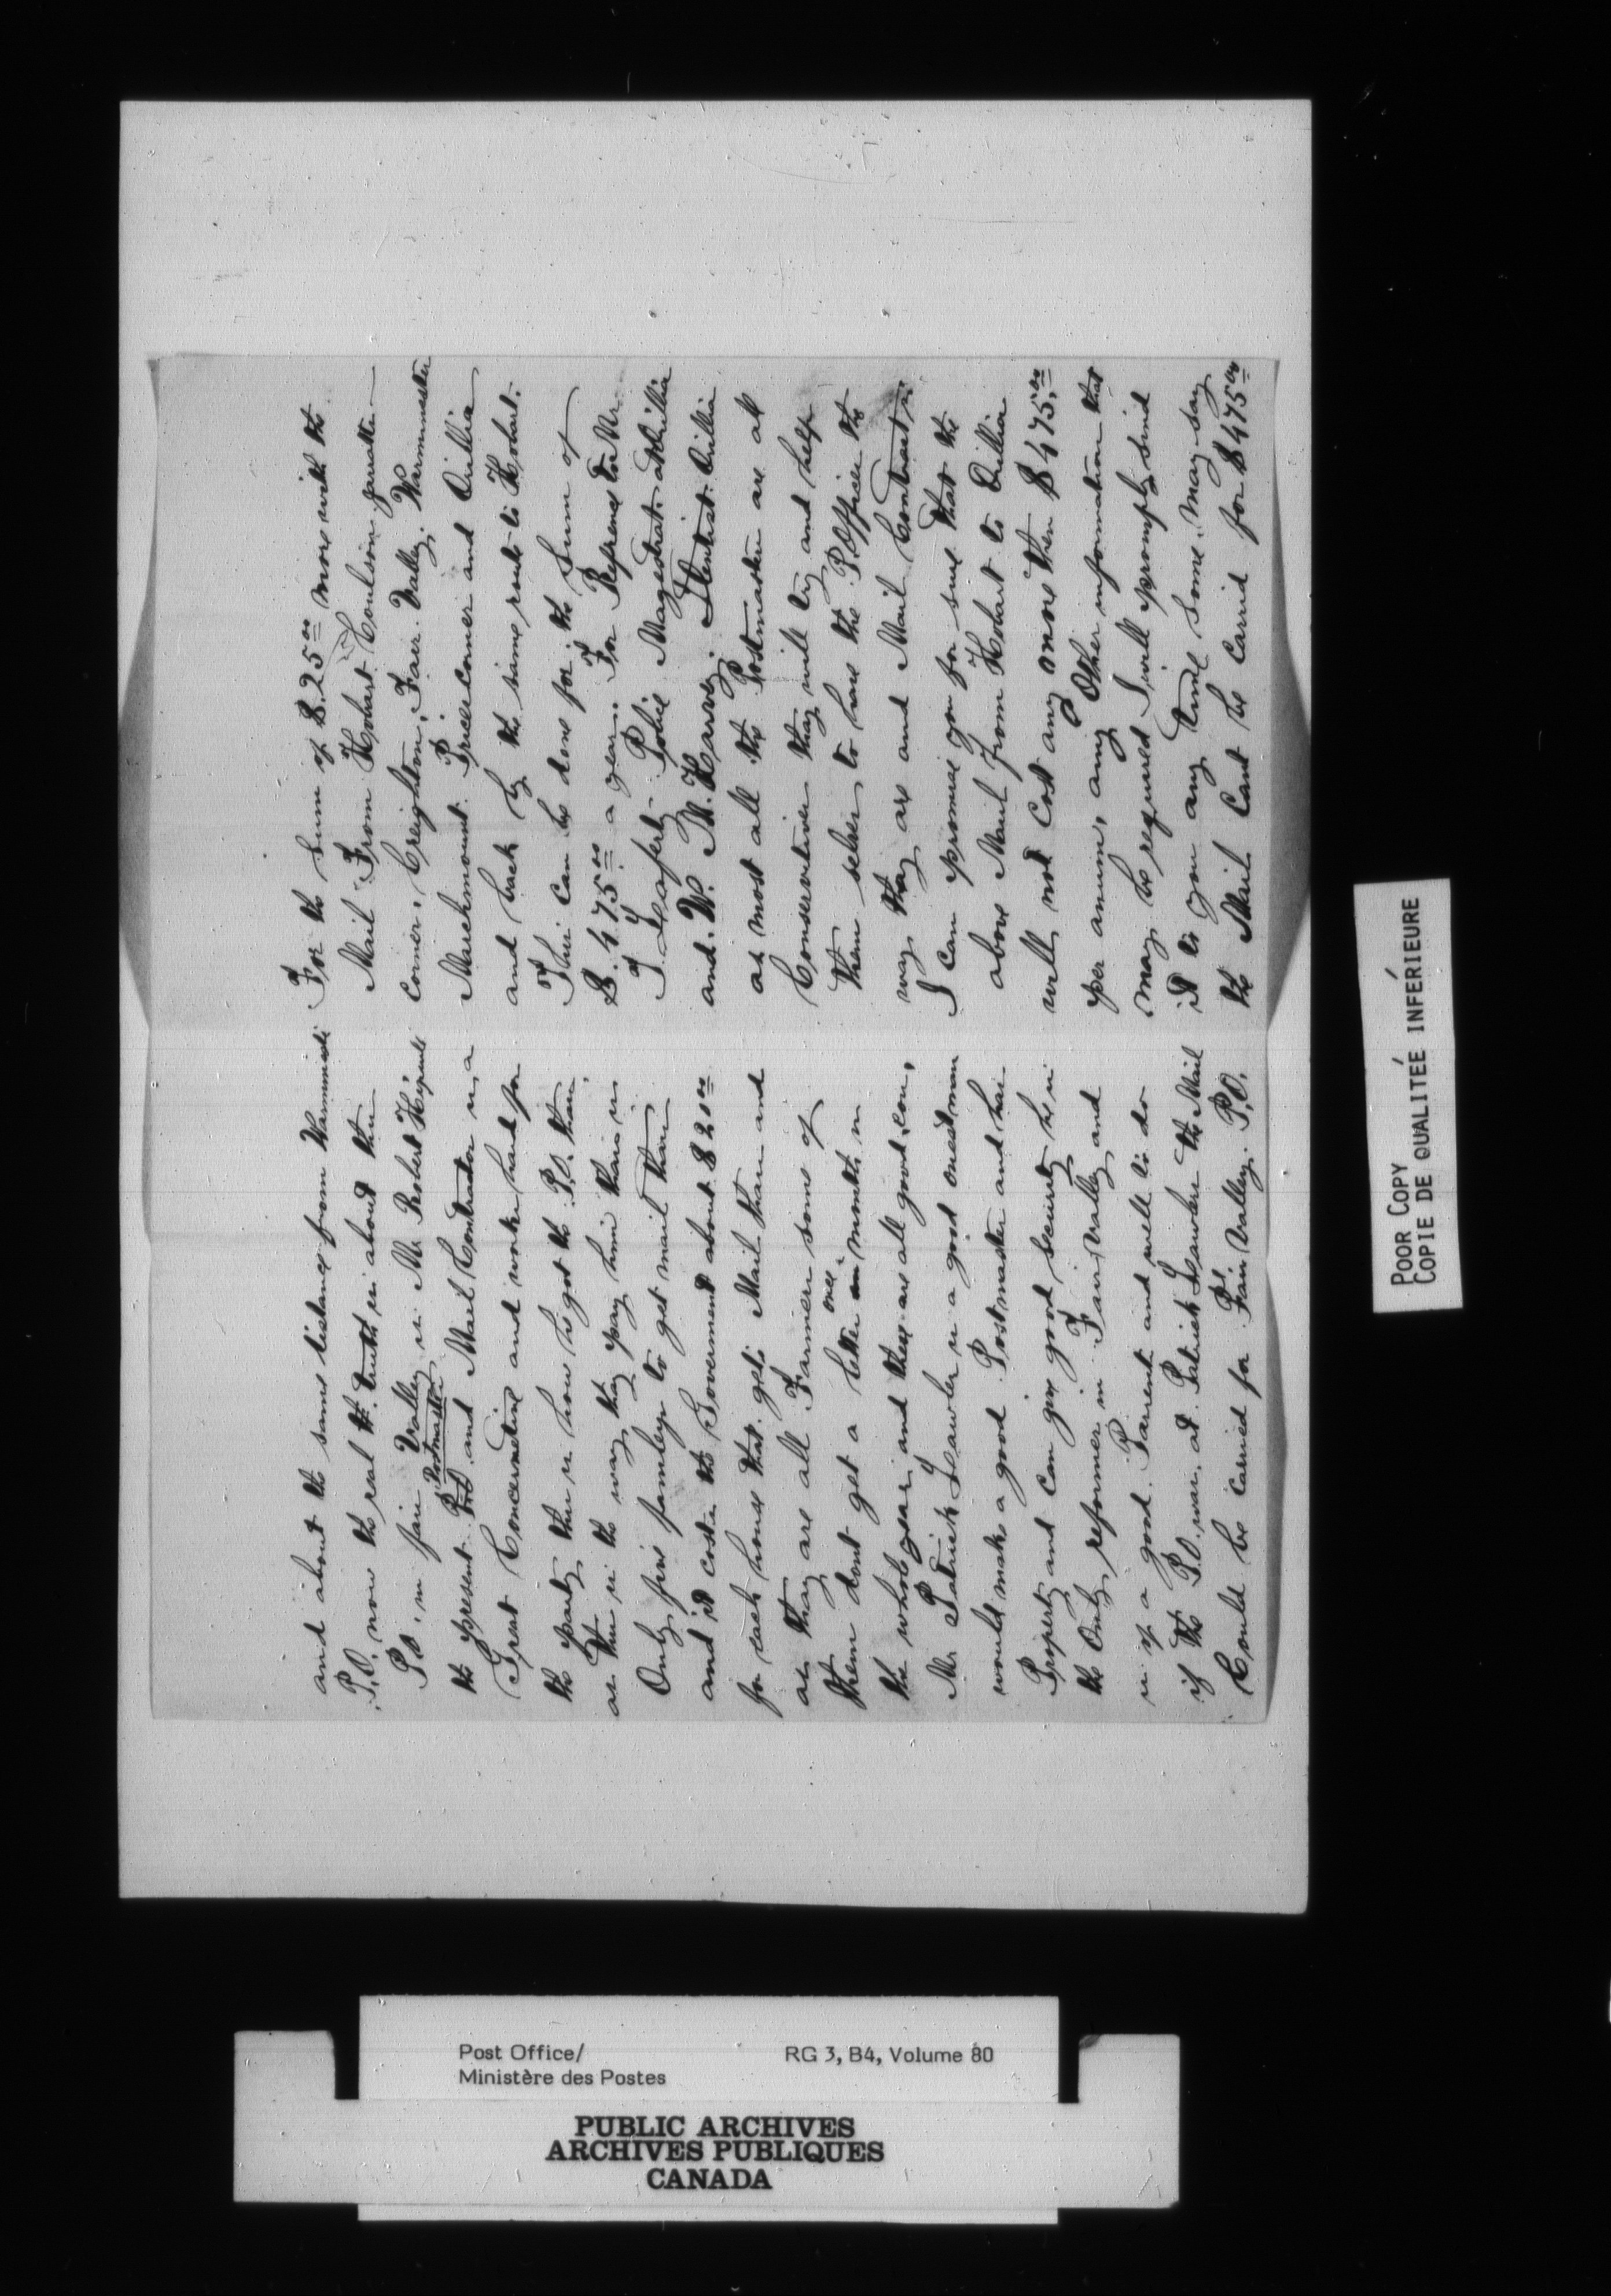 and about the same distance from Warminsti
P.O. now the real tr. truth is about this
P.O. in fair Valley is Mr Robert
the present Postmaster and Mail Contractor is a
Great Concervetive and worke hard for
the party this is how he got the P.O. thair,
as this is the way they pay him thair is
Only five famleys to get mail thair
and it costs the Goverment about $20.00
for each house that gets Mail thair and
as they are all Farmers some of
them dont get a letter once in months in
the whole year and these are all good con,
Mr Patrick Lawler is a good onest man
would make a good Postmaster and has
Property and can give good security he is
the Only reformer in Fair Valley and
is of a good Parrents and well to do
if the P.O. was at Patrick Lawlers the Mail
Could be carried for Fair Valley P.O.
For the sum of $.25.00 more with the
Mail From Hobart Coulson
corner, Creighton, Fair Valley Warminster
Marchmount Pricecorner and Orillia
and back by the same route to Hobart.
This can be done for the Sum of
$.475.00 a year. For Refrence to Mr.
J Lafferty Police Magestrat. at Orillia
and W. M. Harvey. Dentist. Orillia
as most all the Postmasters are all
Conservetives they will try and help
them selves to have the P.Offices the
way they are and Mail Contracts.
I can promise you for sure that the
above Mail from Hobart to Orillia
will not Cost any more then $475.00
per annum, any Other information that
may be required I will promply sind
it to you any time some may say
the Mail Cant be Carrid for $475.00
POOR COPY
COPIE DE QUALITEÉ INFÉRIEURE
Post Office/ RG 3, B4, Volume 80
Ministère des Postes
PUBLIC ARCHIVES
ARCHIVES PUBLIQUES
CANADA